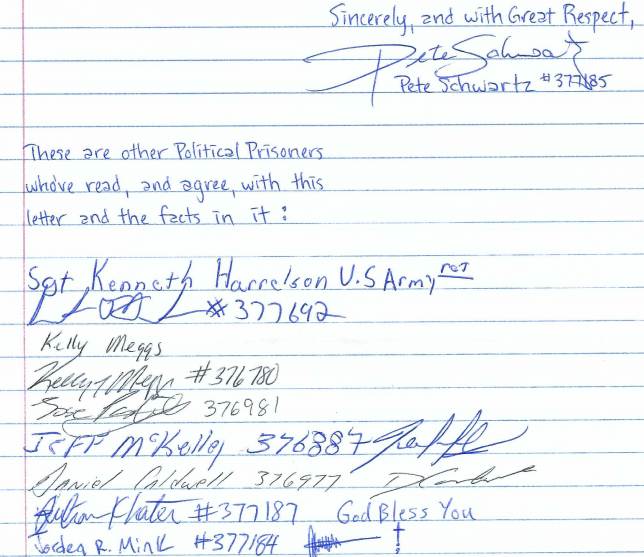 Sincerely, and with Great Respect,
Pete Schwartz
Pete Schwartz #377185
These are other Political Prisoners
whove read, and agree, with this
letter and the facts in it :
Sgt Kenneth Harrelson U.S Army ret
#377692
Kelly Meggs
Kelly Meggs #376780
Jose Padilla 376981
Jeff McKellop 376887
Daniel Caldwell 376977
Julian Khater #377187 God Bless You
Jorden R. Mink #377184